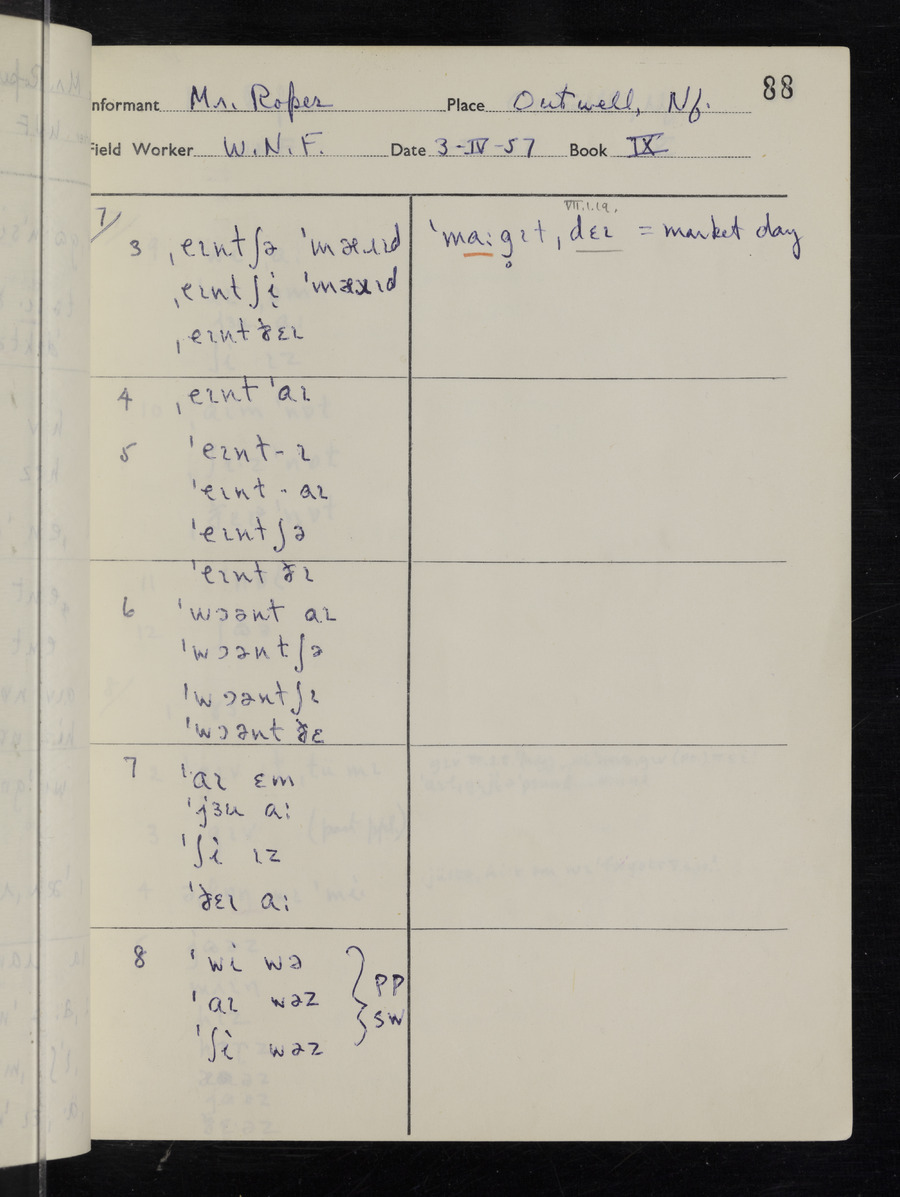 88
Informant Mr. Roper Place Outwell, Nf.
Field Worker W.N.F. Date 3-IV-57 Book IX
7/
3 ˌeɪntʃə ˈmæɹɪd
ˌeɪntʃi̜ ˈmæɹɪd
ˌeɪnt ðɛɪ
4 ˌeɪnt ˈaɪ
5 ˈeɪnt-ɪ
ˈeɪnt-aɪ
ˈeɪntʃə
ˈeɪnt ðɪ
6 ˈwɔənt aɪ
ˈwɔəntʃə
ˈwɔəntʃɪ
ˈwɔənt ðɛ
7 ˈaɪ ɛm
ˈjɜu a:
ˈʃi ɪz
ˈðɛɪ a:
8 ˈwi wə
ˈaɪ wəz
ˈʃi wəz
PP
SW
VII.1.19.
ˈma:g̥ɪt,dɛɪ = market day